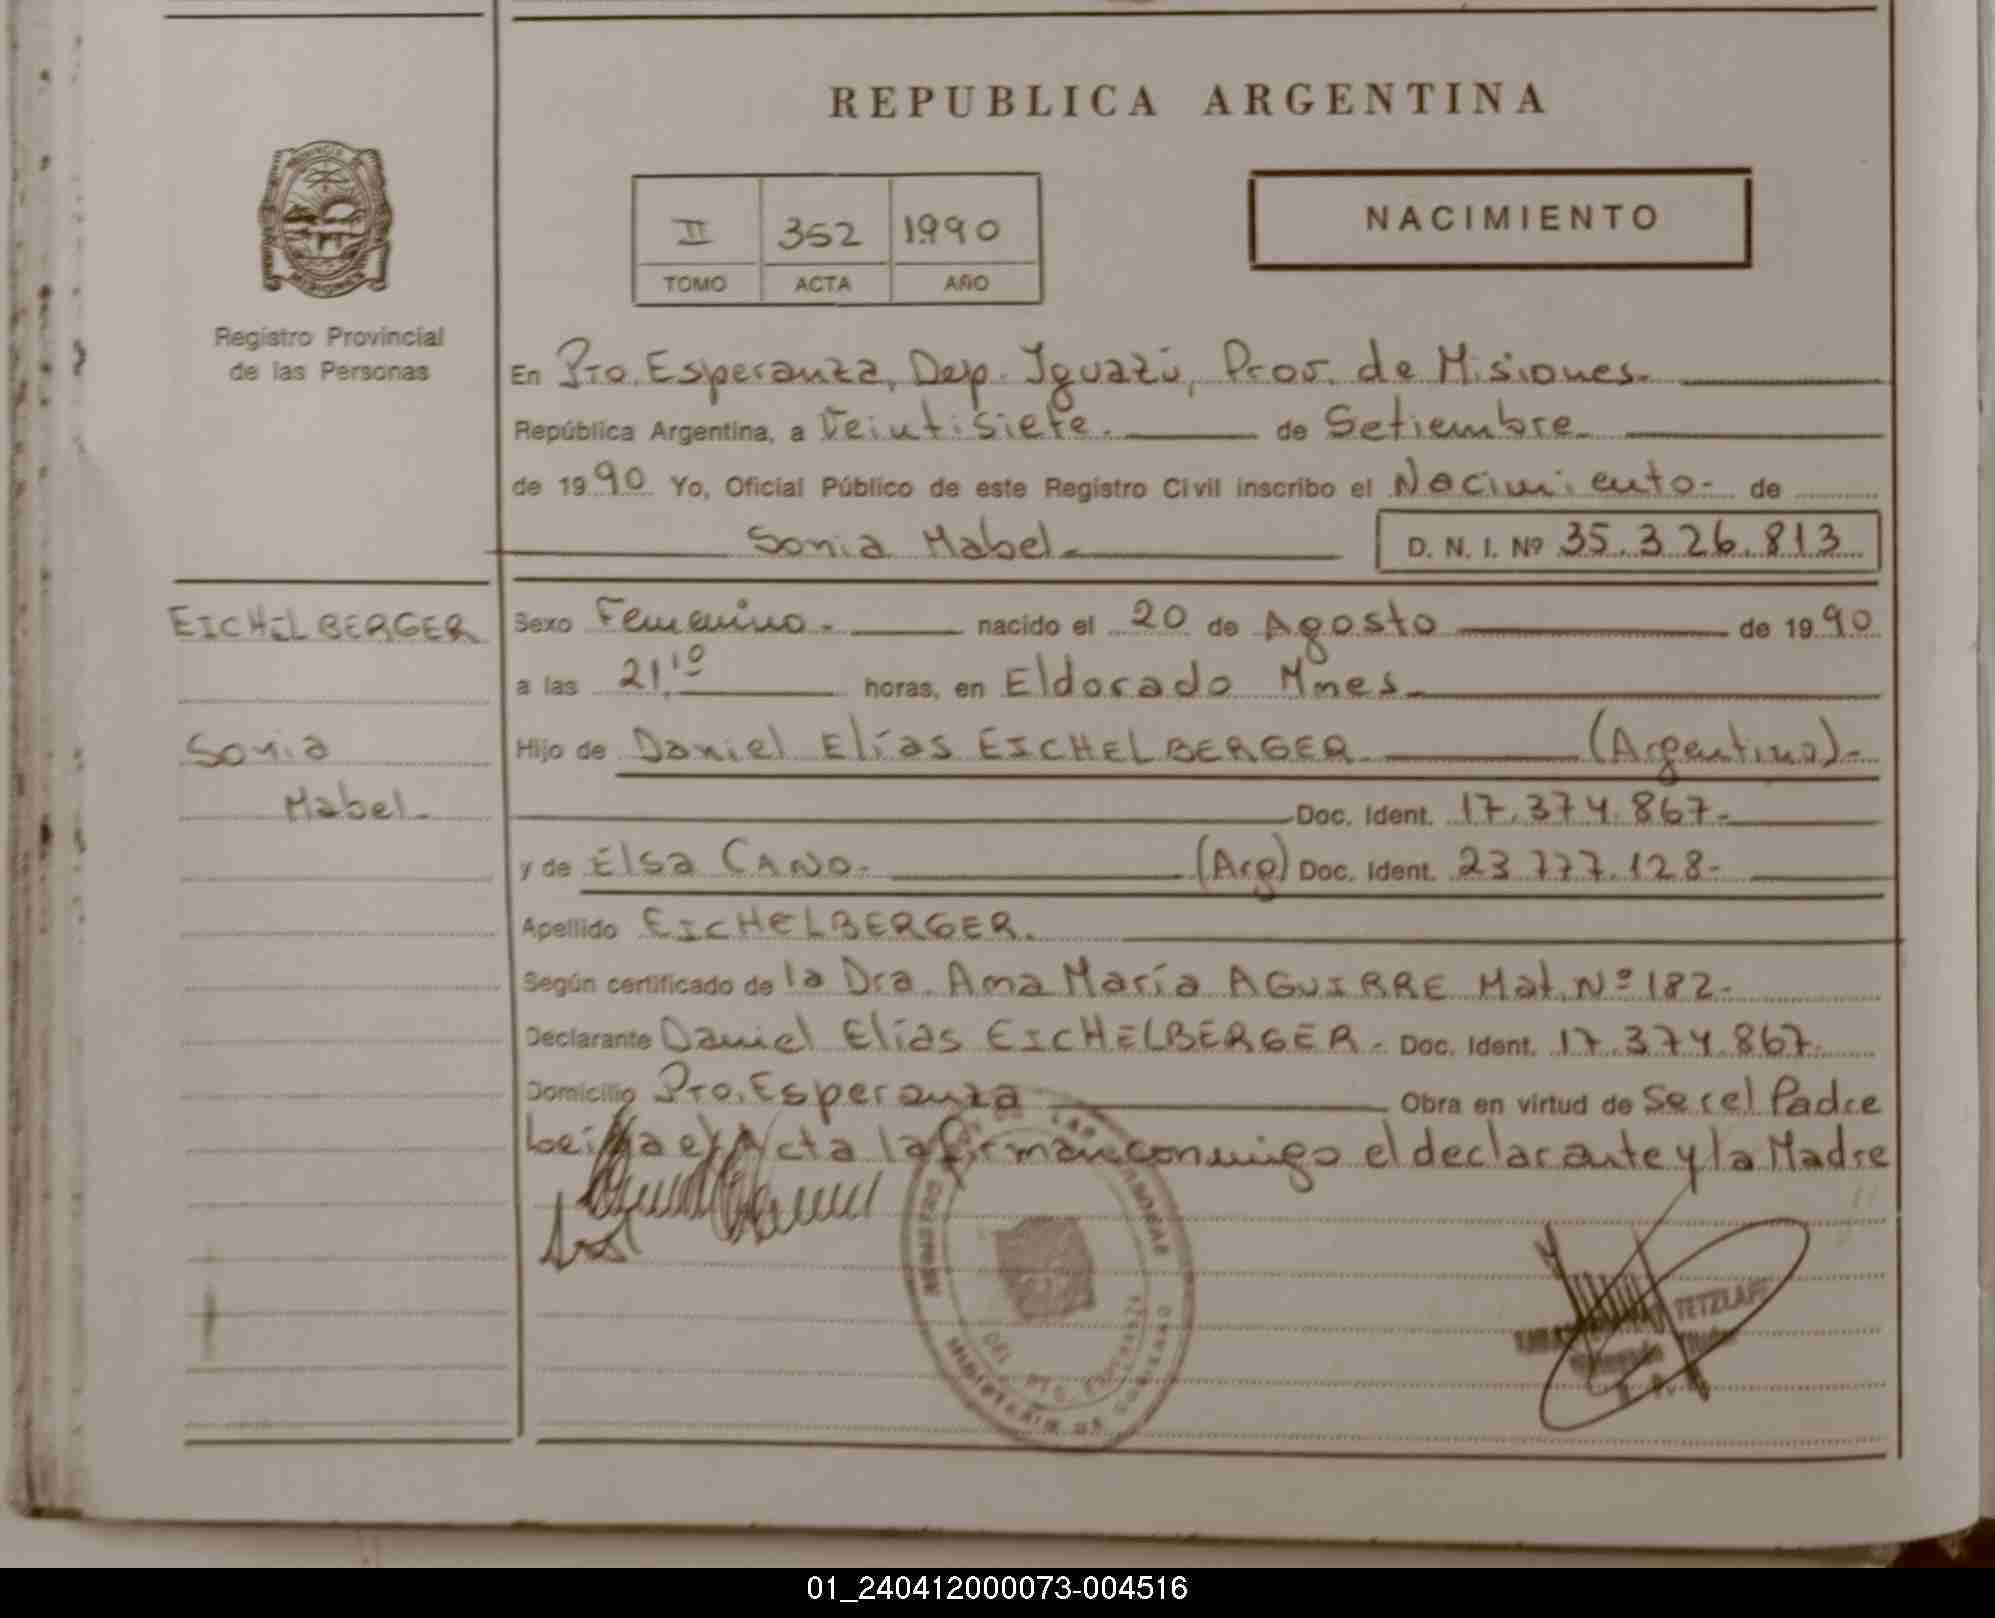 REPUBLICA ARGENTINA
II 352 1990
TOMO ACTA AÑO
NACIMIENTO
Registro Provincial
de las Personas
En Pto. Esperanza, Dep. Iguazú, Prov. de Misiones.
República Argentina, a Veintisiete. de Setiembre
de 1990 Yo, Oficial Público de este Registro Civil inscribo el Nacimiento- de
Sonia Mabel D. N. I. Nº 35.326.813
EICHELBERGER
Sonia
Mabel
Sexo Femenino. nacido el 20 de Agosto de 1990
a las 21,10 horas, en Eldorado Mnes
Hijo de Daniel Elías EICHELBERGER (Argentino)-
Doc. Ident. 17.374.867-
y de Elsa CANO- (Arg) Doc. Ident. 23.777.128-
Apellido EICHELBERGER.
Según certificado de la Dra. Ana María AGUIRRE Mat. Nº 182-
Declarante Daniel Elías EICHELBERGER- Doc. Ident. 17.374.867.
Domicilio Pto. Esperanza Obra en virtud de Ser el Padre
leída el Acta la firman conmigo el declarante y la Madre
DEL. PTO. ESPERANZA
MINISTERIO DE GOBIERNO
TETZLAFF
01_240412000073-004516